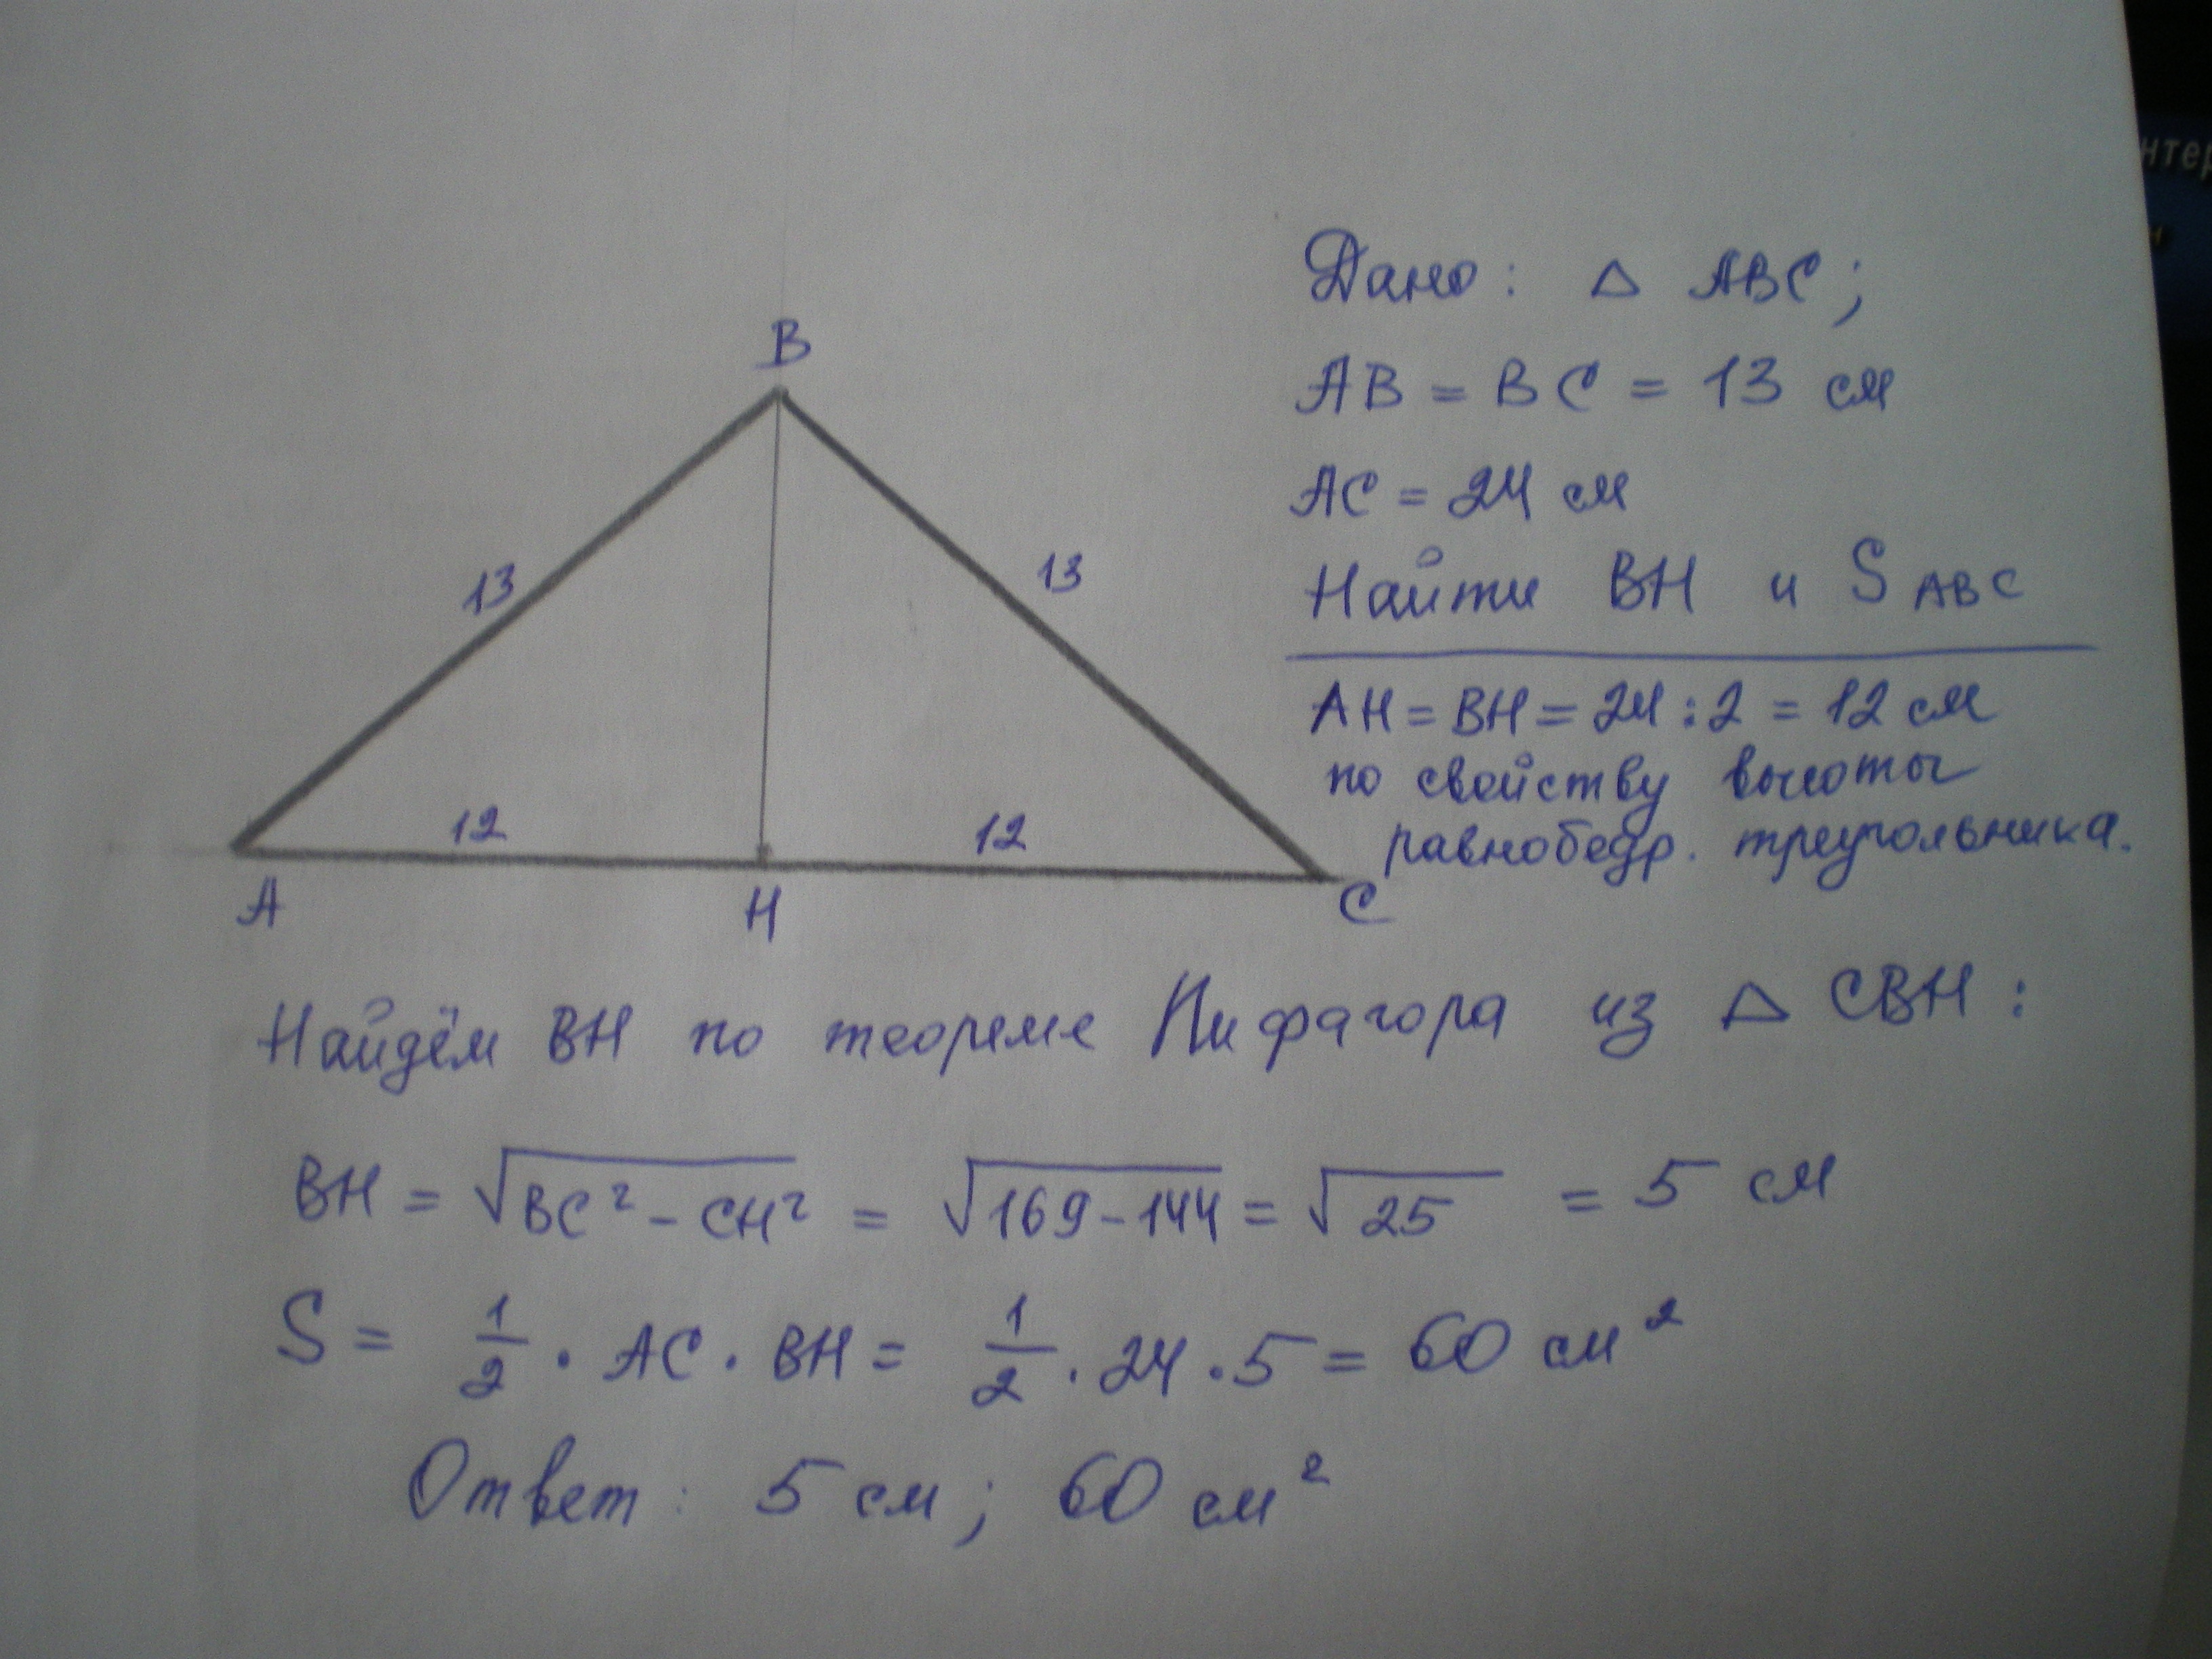 B
13
13
12
12
A
H
C
Дано: △ ABC;
AB = BC = 13 см
AC = 24 см
Найти BH и S ABC
AH = BH = 24 : 2 = 12 см
по свойству высоты
равнобедр. треугольника.
Найдём BH по теореме Пифагора из △ CBH:
BH = √BC² - CH² = √169-144 = √25 = 5 см
S = 1/2 · AC · BH = 1/2 · 24 · 5 = 60 см²
Ответ: 5 см; 60 см²
нтер